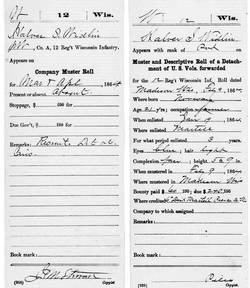 12 Wis.
Halver S. Wedlin
Pvt., Co. A, 12 Reg't Wisconsin Infantry.
Appears on
Company Muster Roll
for Mar & Apl, 1864
Present or absent Absent
Stoppage, $ 100 for
Due Gov't, $ 100 for
Remarks: Recruit
Book mark:
Copyist.
W 12 Wis.
Halver S. Wedlin
Appears with rank of
Muster and Descriptive Roll of a Detachment of U. S. Vols. forwarded
for the 12 Reg't Wisconsin Inf. Roll dated
Madison Wis. Feb 9, 1864
Where born Norway
When enlisted
Where enlisted Martell
For what period enlisted years.
Eyes blue; hair light
Complexion; height 5 ft. 9 in.
When mustered in Feb 9, 1864
Where mustered in Madison Wis
Bounty paid $ 60 100; due $ 240 100
Where credited
Company to which assigned
Remarks:
Book mark:
Copyist.